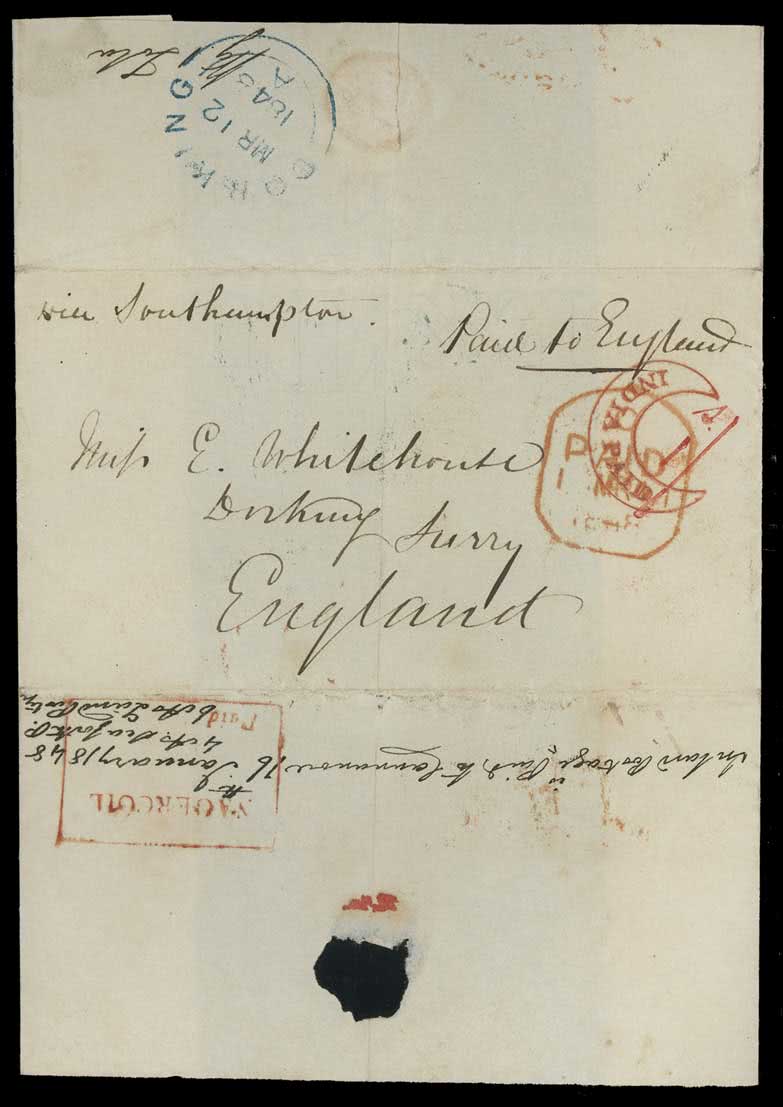 DORKING
MR 12
1848
A
via Southampton.
Paid to England
INDIA PAID
1
PD
MR
1848
Miss E. Whitehouse
Dorking Surry
England
NAGERCOIL
Paid
Inland Postage Paid to Cannanore 16 January 1848